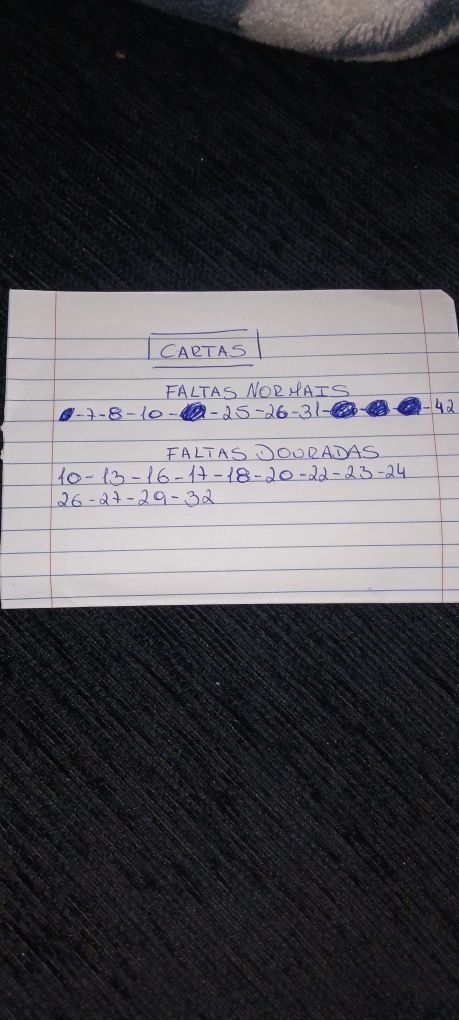 CARTAS
FALTAS NORMAIS
-7-8-10- -25-26-31- - - -42
FALTAS DOURADAS
10-13-16-17-18-20-22-23-24
26-27-29-32